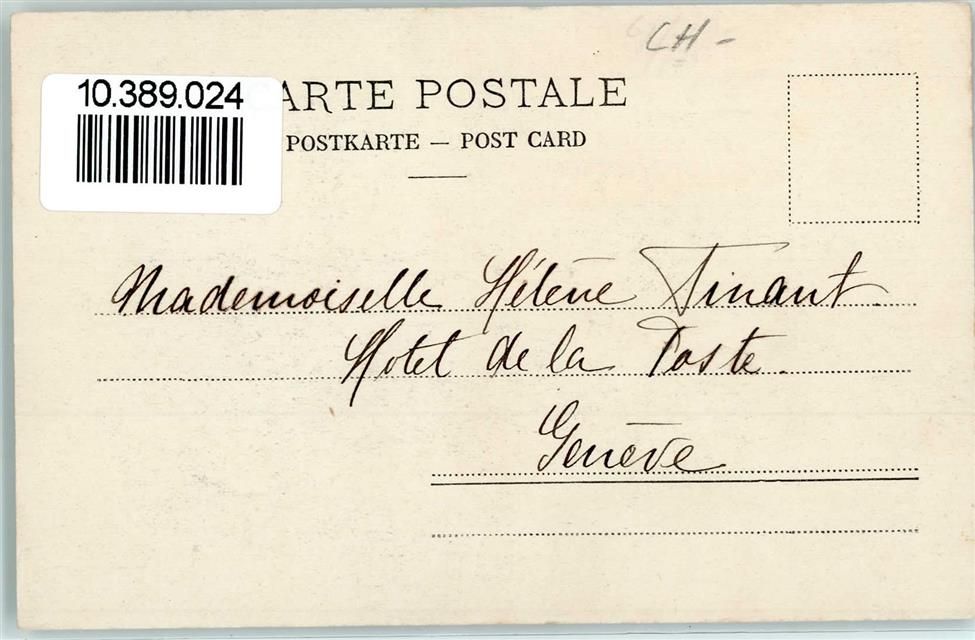 CH -
10.389.024
ARTE POSTALE
POSTKARTE — POST CARD
Mademoiselle Hélène Tinant.
Hotel de la Poste.
Genève